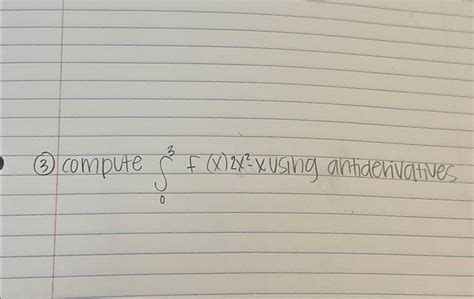 ③ compute ∫₀³ f(x) 2x² - x using antiderivatives